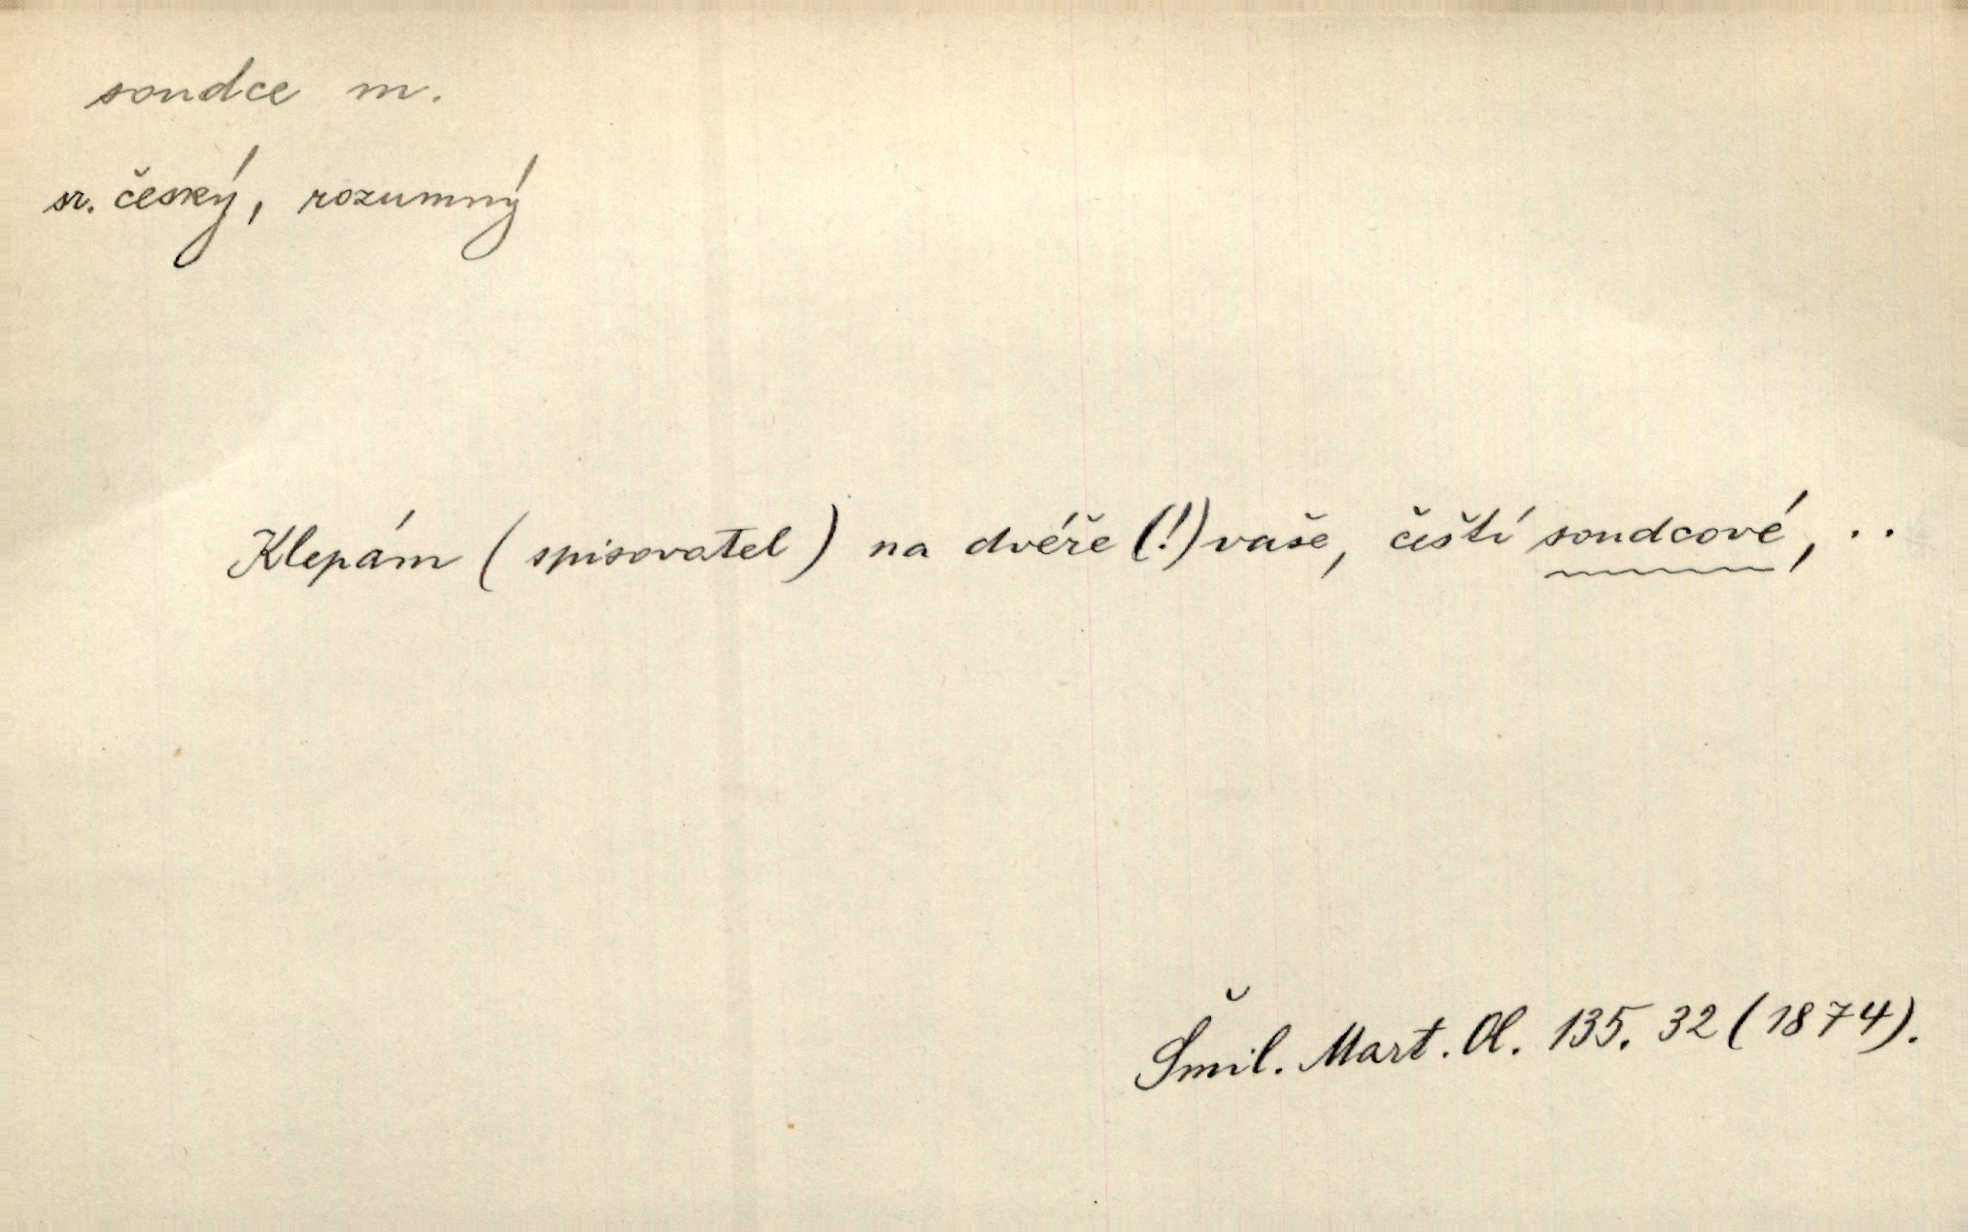 soudce m.
sr. český, rozumný
Klepám (spisovatel) na dvéře (!) vaše, čeští soudcové, ..
Šmil. Mart. Ol. 135. 32 (1874).